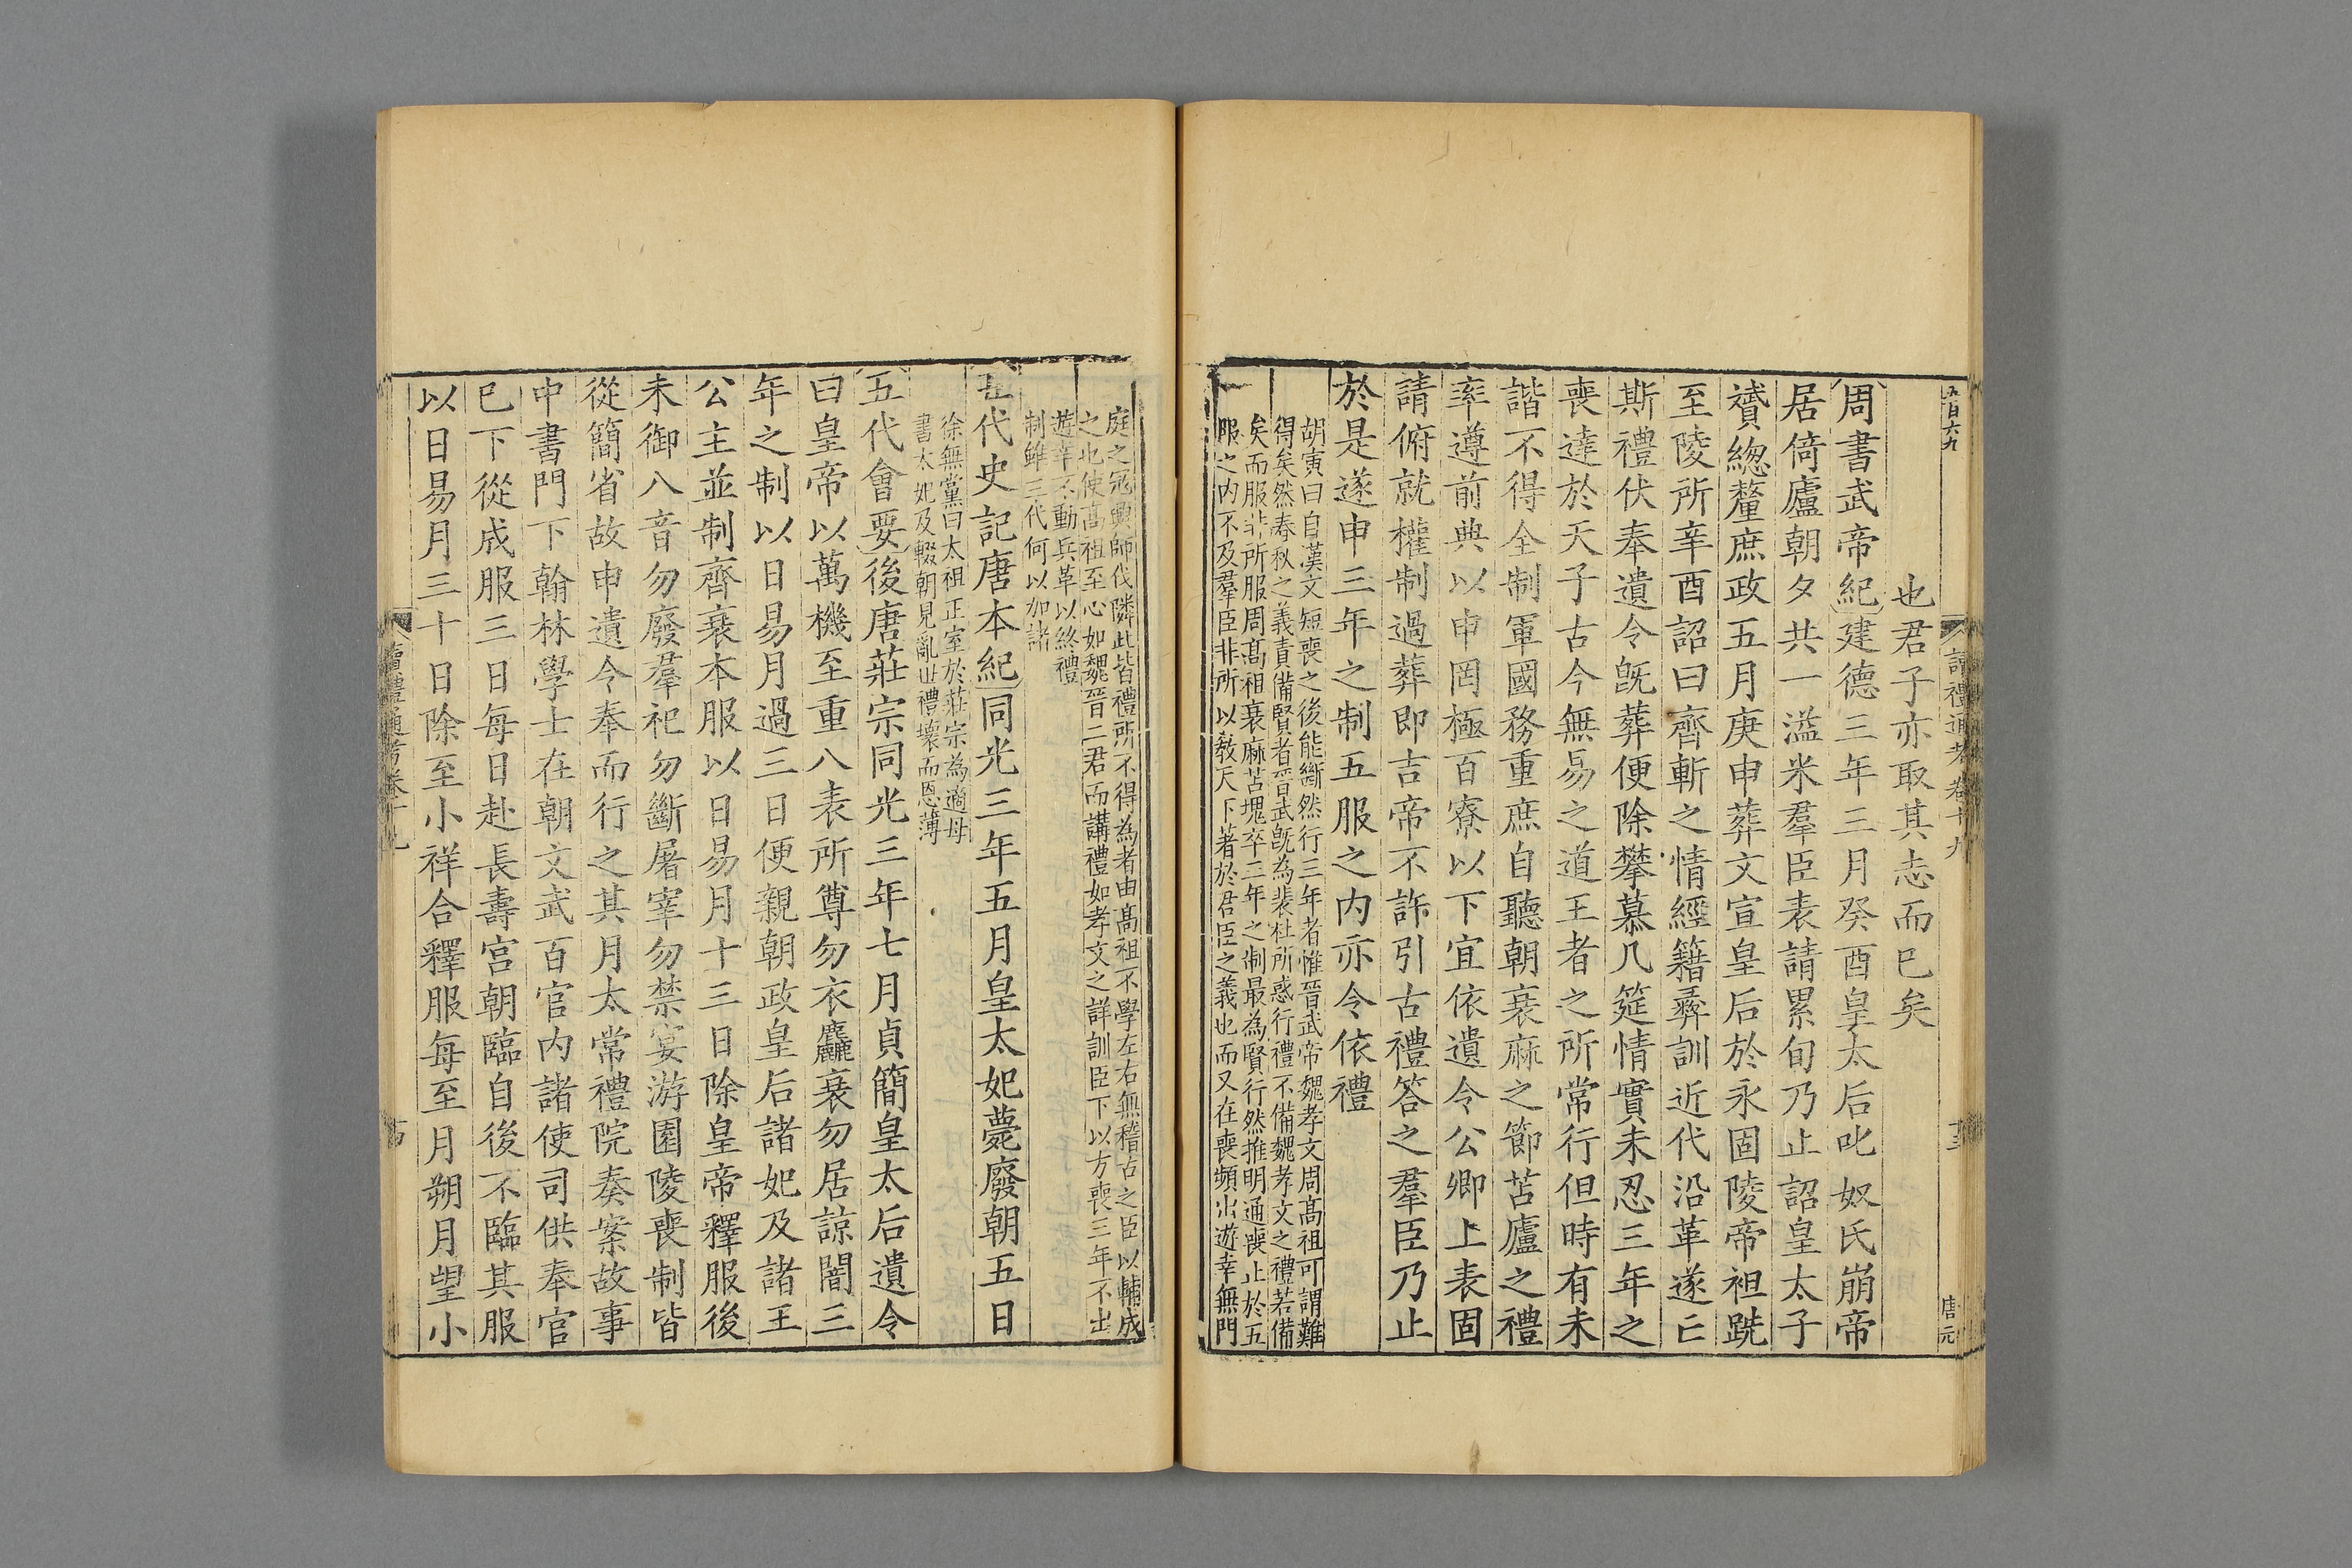 五百六九
讀禮通考卷十九
唐元
也君子亦取其志而已矣
周書武帝紀建德三年三月癸酉皇太后叱奴氏崩帝
居倚廬朝夕共一溢米羣臣表請累旬乃止詔皇太子
贇緫釐庶政五月庚申葬文宣皇后於永固陵帝袒跣
至陵所辛酉詔曰齊斬之情經籍彝訓近代沿革遂亡
斯禮伏奉遺令旣葬便除攀慕几筵情實未忍三年之
喪達於天子古今無易之道王者之所常行但時有未
諧不得全制軍國務重庶自聽朝衰麻之節苫廬之禮
率遵前典以申罔極百寮以下宜依遺令公卿上表固
請俯就權制過葬即吉帝不許引古禮答之羣臣乃止
於是遂申三年之制五服之內亦令依禮
胡寅曰自漢文短喪之後能斷然行三年者惟晉武帝魏孝文周髙祖可謂難
得矣然春秋之義責備賢者晉武旣為裴杜所惑行禮不備魏孝文之禮若備
矣而服非所服周髙祖衰麻苫塊卒三年之制最為賢行然推明通喪止於五
服之內不及羣臣非所以敎天下著於君臣之義也而又在喪頻出遊幸無門
庭之冦興師伐隣此皆禮所不得為者由髙祖不學左右無稽古之臣以輔成
之也使髙祖至心如魏晉二君而講禮如孝文之詳訓臣下以方喪三年不出
遊幸不動兵革以終禮
制雖三代何以加諸
五代史記唐本紀同光三年五月皇太妃薨廢朝五日
徐無黨曰太祖正室於莊宗為適母
書太妃及輟朝見亂世禮壞而恩薄
五代會要後唐莊宗同光三年七月貞簡皇太后遺令
曰皇帝以萬機至重八表所尊勿衣麤衰勿居諒闇三
年之制以日易月過三日便親朝政皇后諸妃及諸王
公主並制齊衰本服以日易月十三日除皇帝釋服後
未御八音勿廢羣祀勿斷屠宰勿禁宴游園陵喪制皆
從簡省故申遺令奉而行之其月太常禮院奏案故事
中書門下翰林學士在朝文武百官內諸使司供奉官
已下從成服三日每日赴長壽宫朝臨自後不臨其服
以日易月三十日除至小祥合釋服每至月朔月望小
讀禮通考卷十九